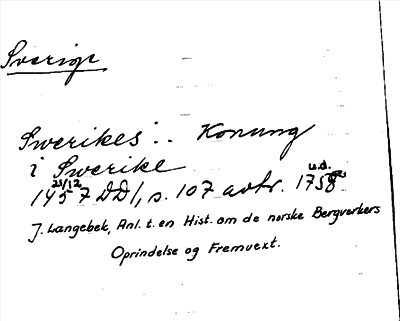 Sverige
Swerikes : . . Konung
i Swerike
23/12 u.d.
1457 DDI, s. 107 avtr. 1758
J. Langebek, Anl. t. en Hist. om de norske Bergverkers
Oprindelse og Fremvext.